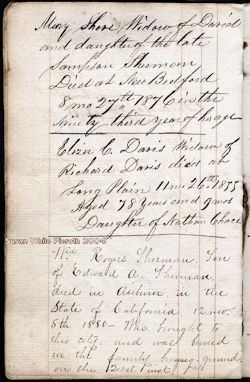 Mary Shove Widow of David
and daughter of the late
Sampson Sherman
Died at New Bedford
8 mo 27th 1876 in the
Ninety third year of her age
Eliza C. Davis Widow of
Richard Davis died at
Long Plain 11 mo 26th 1855
Aged 78 years and 9 mos
Daughter of Nathan Chace
Susan White Pieroth 2004
Rogers Sherman, Son
of Edward A. Sherman,
died in Auburn in the
State of California 12 mo.
5th 1850 - Was brought to
this city, and was buried
in the family burying-ground
on the 21st inst